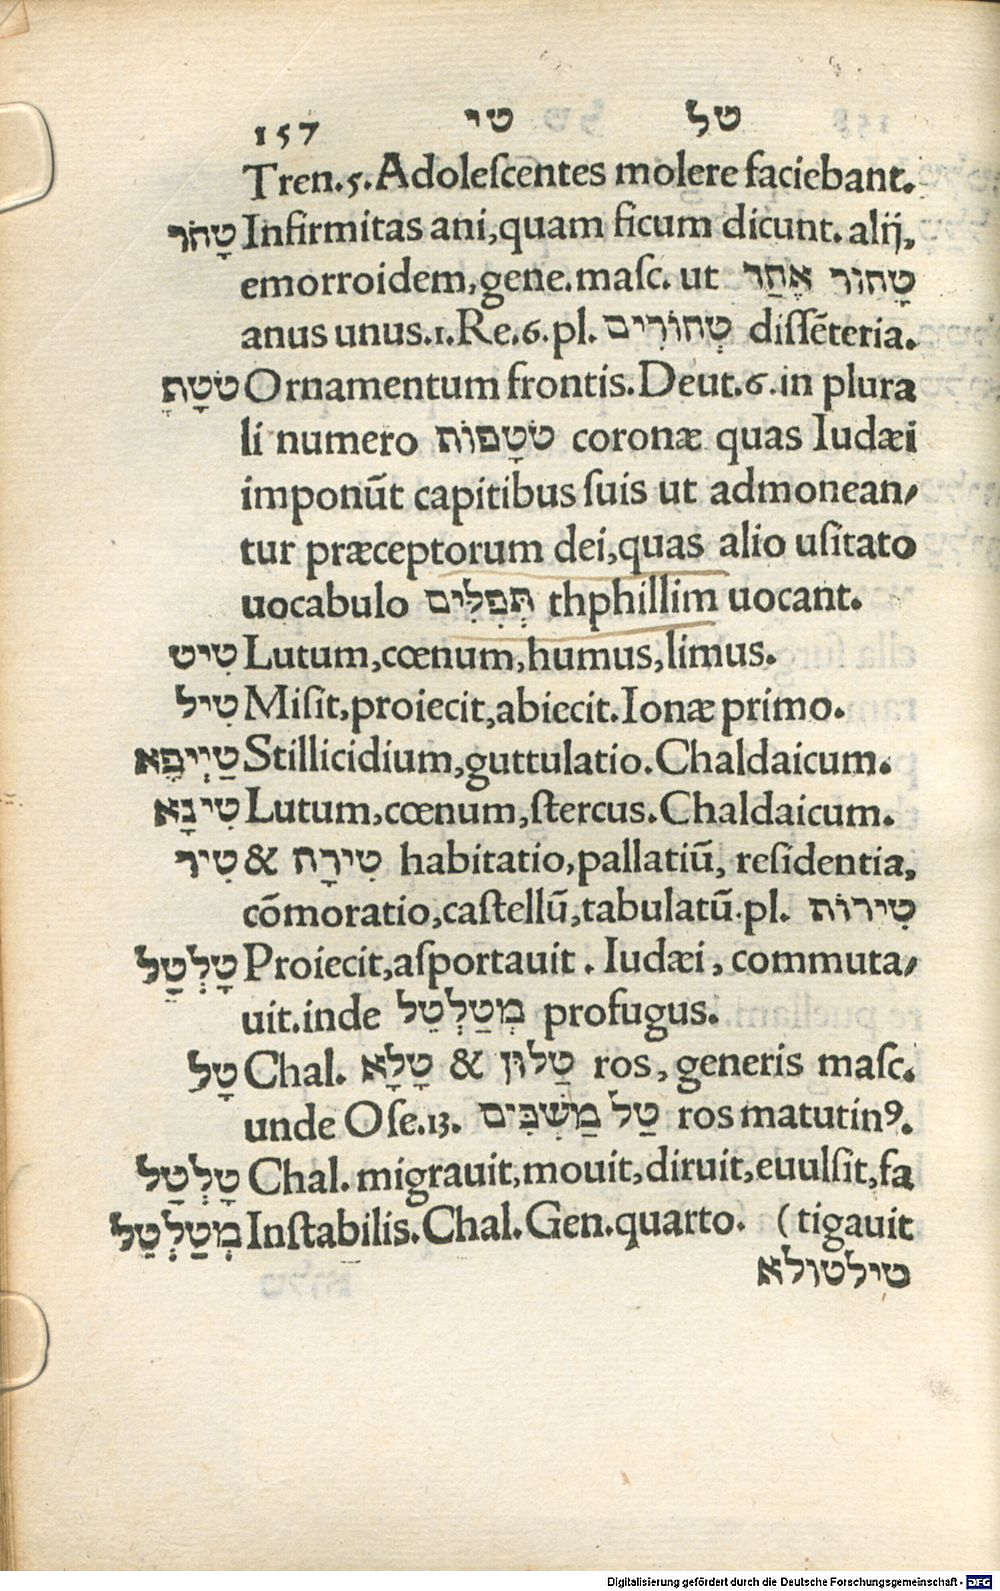 157 טי טל
Tren.5.Adoleſcentes molere faciebant.
טָהֹר Infirmitas ani,quam ficum dicunt. alij,
emorroidem,gene.maſc. ut טָהוֹר אֶחַר
anus unus.1.Re.6.pl. טְהוֹרִים diſſẽteria.
טֹטָת Ornamentum frontis.Deut.6.in plura
li numero טֹטָפוֹת coronæ quas Iudæi
imponũt capitibus ſuis ut admonean/
tur præceptorum dei,quas alio uſitato
uocabulo תְּפִלִּים thphillim uocant.
טִיט Lutum,cœnum,humus,limus.
טִיל Miſit,proiecit,abiecit.Ionæ primo.
טַיְיפָא Stillicidium,guttulatio.Chaldaicum.
טִינָא Lutum,cœnum,ſtercus.Chaldaicum.
טִיר & טִירָה habitatio,pallatiũ, reſidentia,
cõmoratio,caſtellũ,tabulatũ.pl. טִירוֹת
טָלְטַל Proiecit,aſportauit. Iudæi, commuta/
uit.inde מְטַלְטֵל profugus.
טָל Chal. טָלָא & טַלּוּן ros, generis maſc.
unde Oſe.13. טַל מַשְׁבִּים ros matutinꝰ.
טָלְטַל Chal. migrauit,mouit,diruit,euulſit,fa
מְטַלְטֵל Inſtabilis.Chal.Gen.quarto. (tigauit
טילטולא
Digitalisierung gefördert durch die Deutsche Forschungsgemeinschaft - DFG